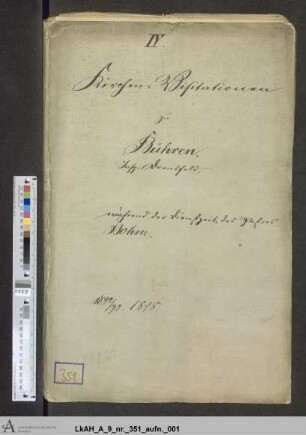 IV.
Kirchen Visitationen
zu
Bühren.
Insp. Dransfeld.
während der Dienstzeit des Pastors
Bohm.
1892/93. 1898.
351
LkAH_A_9_nr._351_aufn._001